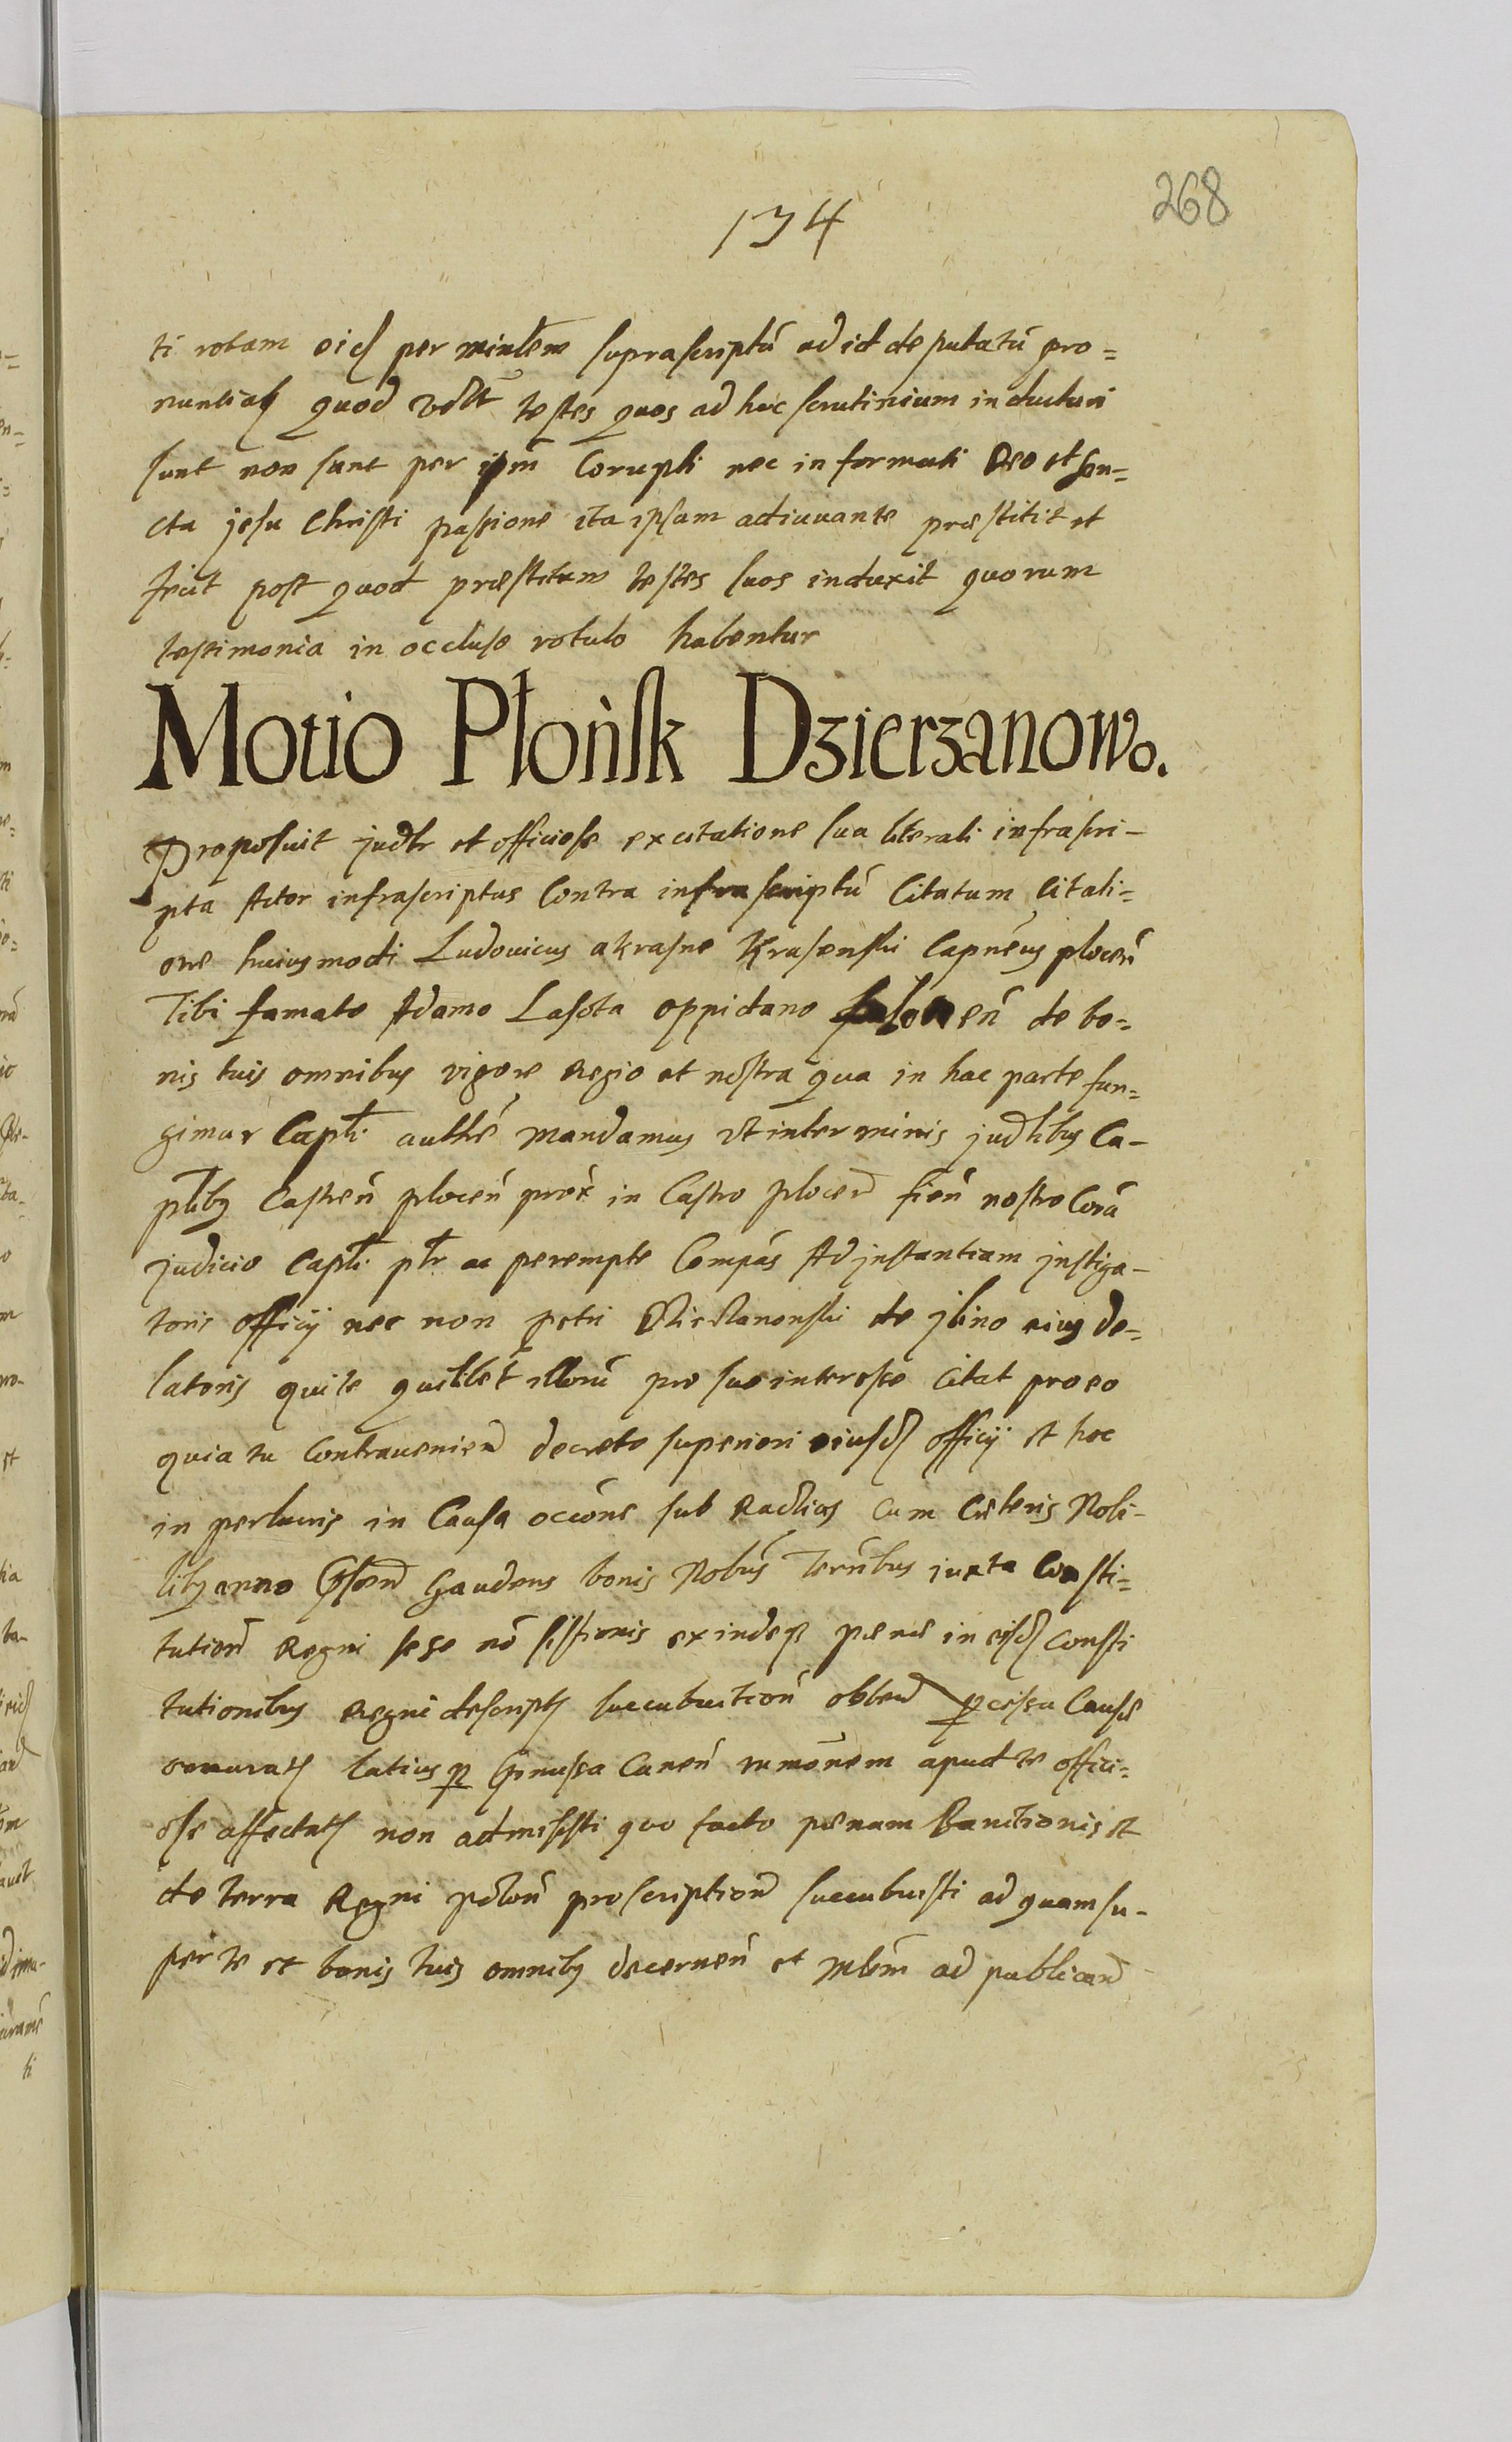 268
134
ti rotam eid per minłem suprascriptũ ad id deputatũ pro=
nuntiat quod vdłt testes quos ad hoc scrutinium inducturi
sunt non sunt per ipm̃ Corrupti nec informati Deo et san=
cta jesu Christi passione ita ipsam adiuuante præstitit et
fecit post quod præstitum testes suos induxit quorum
testimonia in occluso rotulo habentur
Motio Płońsk Dzierzanowo.
Proposuit judłr et officiose ex citatione sua literali infrascri-
pta Actor infrascriptus Contra infrascriptũ Citatum Citati=
one huiusmodi Ludouicus a krasne Krasenski Capneus plocen̄
Tibi famato Adamo Lasota oppidano de bo=
nis tuis omnibus vigore Regio et nostra qua in hac parte fun=
gimur Capłi authẽ mandamus vt in terminis judłibus Ca-
płibus Castren̄ plocen̄ prox in Castro plocen̄ fien̄ nostro Corã
judicio Capłi płr ac perempte Compãs Ad jnstantiam jnstiga-
toris officij nec non petri de jlino eius de=
latoris qui te quilibet illorũ pro suo interesse Citat pro eo
quia tu Contraueniend decreto superiori eiusd officij et hoc
in perlucris in Causa occõne sub Cum Cæteris Nobi-
libus anno Gaudens bonis Nobũs Terribus iuxta Consti=
tution̄ Regni sese nõ sistionis exindeq pænæ in eisd Consti
tutionibus Regni descriptis succubuition̄ obtend Causæ
latius Canen̄ rumõnem apud te offici=
ose affectat non admisisti quo facto pænam Banitionis et
de terra Regni polon̄ proscription̄ succubuisti ad quam su-
per te et bonis tuis omnibus decernen̄ et młem ad publicand